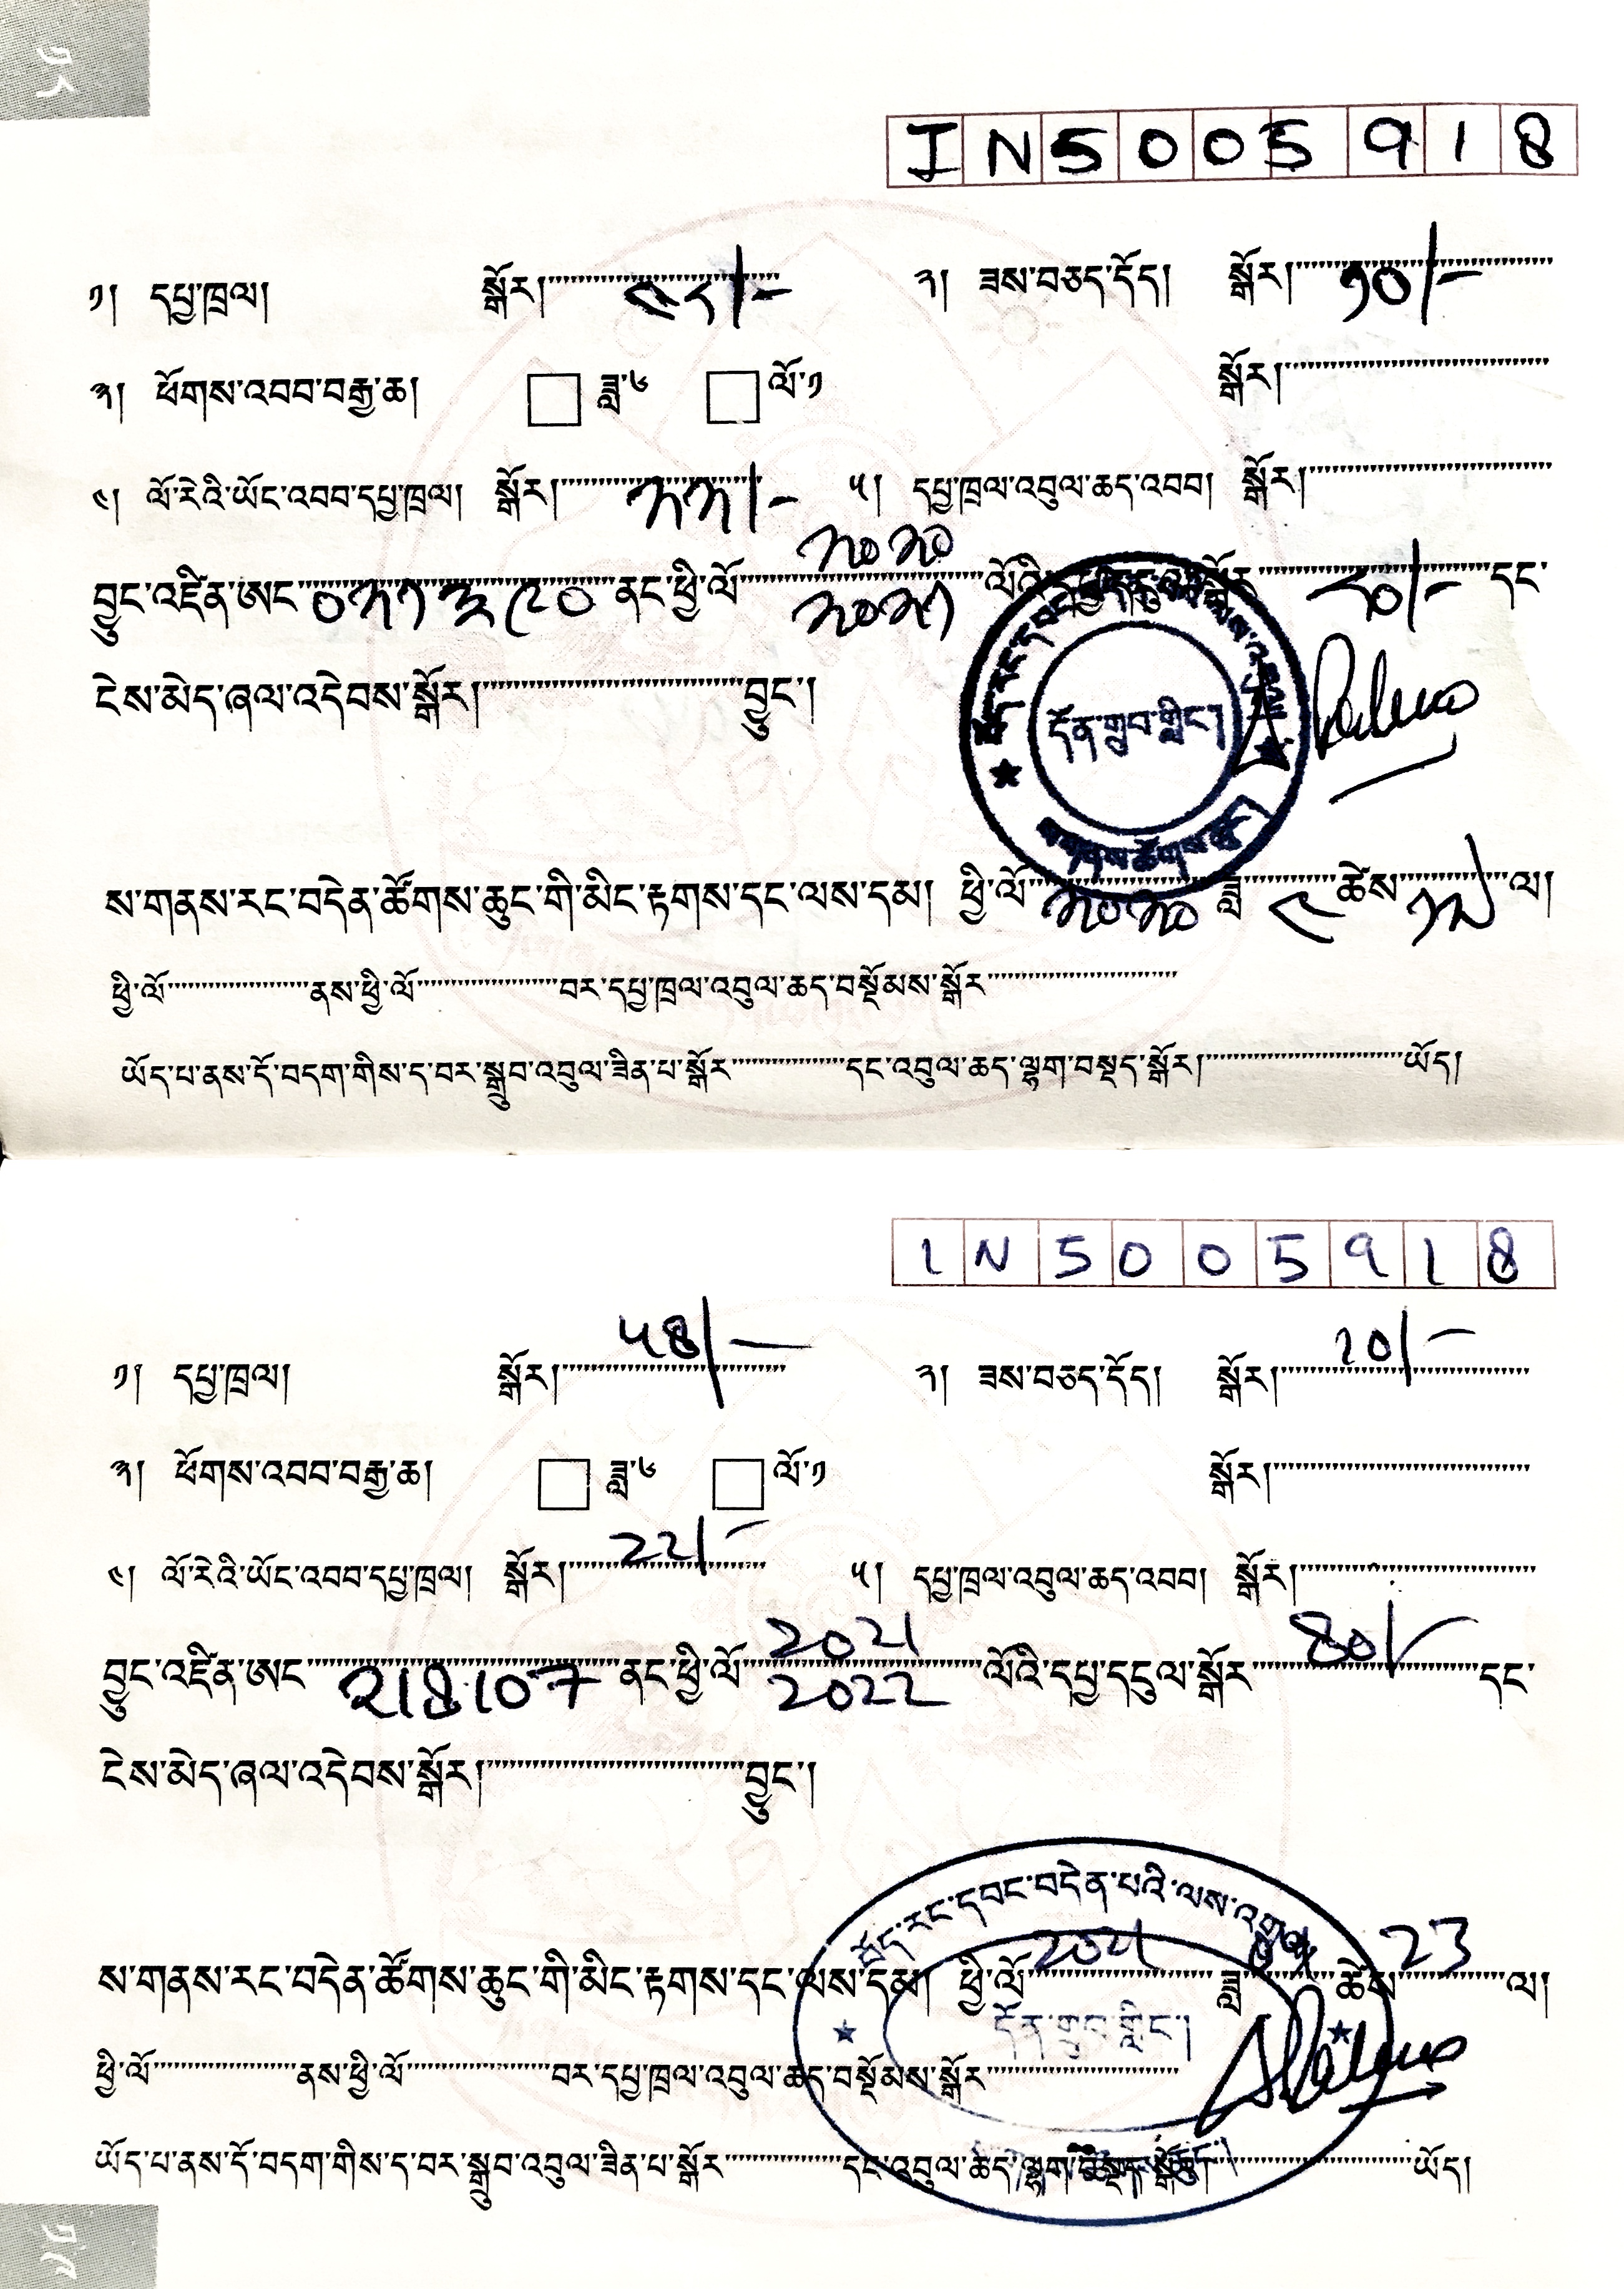 ༥༨
IN5005918
༡། དཔྱ་ཁྲལ། སྒོར། ༤༨/- ༢། ཟས་བཅད་དོད། སྒོར། ༡༠/-
༣། ཕོགས་འབབ་བརྒྱ་ཆ། ཟླ་༦ ལོ་༡ སྒོར།
༤། ལོ་རེའི་ཡོང་འབབ་དཔྱ་ཁྲལ། སྒོར། ༢༢/- ༥། དཔྱ་ཁྲལ་འབུལ་ཆད་འབབ། སྒོར།
༢༠༢༠
བྱུང་འཛིན་ཨང་ ༠༢༡༣༩༠ ནང་ཕྱི་ལོ་ ༢༠༢༡ ལོའི་དཔྱ་དངུལ་སྒོར་ ༨༠/- དང་
ངེས་མེད་ཞལ་འདེབས་སྒོར། བྱུང་།
དོན་གྲུབ་གླིང་།
ས་གནས་རང་བདེན་ཚོགས་ཆུང་གི་མིང་རྟགས་དང་ལས་དམ། ཕྱི་ལོ་ ༢༠༢༠ ཟླ་ ༤ ཚེས་ ༡༧ ལ།
ཕྱི་ལོ་ ནས་ཕྱི་ལོ་ བར་དཔྱ་ཁྲལ་འབུལ་ཆད་བསྡོམས་སྒོར་
ཡོད་པ་ནས་དོ་བདག་གིས་ད་བར་སྒྲུབ་འབུལ་ཟིན་པ་སྒོར་ དང་འབུལ་ཆད་ལྷག་བསྡད་སྒོར། ཡོད།
IN5005918
༡། དཔྱ་ཁྲལ། སྒོར། ༥8/- ༢། ཟས་བཅད་དོད། སྒོར། 10/-
༣། ཕོགས་འབབ་བརྒྱ་ཆ། ཟླ་༦ ལོ་༡ སྒོར།
༤། ལོ་རེའི་ཡོང་འབབ་དཔྱ་ཁྲལ། སྒོར། 22/- ༥། དཔྱ་ཁྲལ་འབུལ་ཆད་འབབ། སྒོར།
2021
བྱུང་འཛིན་ཨང་ 218107 ནང་ཕྱི་ལོ་ 2022 ལོའི་དཔྱ་དངུལ་སྒོར་ 80/- དང་
ངེས་མེད་ཞལ་འདེབས་སྒོར། བྱུང་།
བོད་རང་དབང་བདེན་པའི་ལས་འགུལ
ས་གནས་རང་བདེན་ཚོགས་ཆུང་གི་མིང་རྟགས་དང་ལས་དམ། ཕྱི་ལོ་ 2021 ཟླ་ ཚེས་ 23 ལ།
དོན་གྲུབ་གླིང་།
ཕྱི་ལོ་ ནས་ཕྱི་ལོ་ བར་དཔྱ་ཁྲལ་འབུལ་ཆད་བསྡོམས་སྒོར་
ཡོད་པ་ནས་དོ་བདག་གིས་ད་བར་སྒྲུབ་འབུལ་ཟིན་པ་སྒོར་ དང་འབུལ་ཆད་ལྷག་བསྡད་སྒོར། ཡོད།